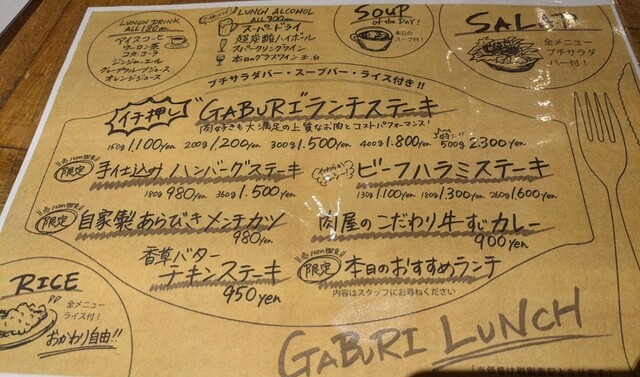 LUNCH DRINK
ALL 180yen
アイスコーヒー
ウーロン茶
コカ・コーラ
ジンジャーエール
グレープフルーツジュース
オレンジジュース
LUNCH ALCOHOL
ALL 300yen
スーパードライ
超炭酸ハイボール
スパークリングワイン
本日のグラスワイン 赤・白
SOUP
of the DAY!
本日の
スープ付!
SALAD
全メニュー
プチサラダ
バー付!
プチサラダバー・スープバー・ライス付き!!
イチ押し
"GABURI"ランチステーキ
肉好きも大満足の上質なお肉とコストパフォーマンス!
150g 1,100yen 200g 1,200yen 300g 1,500yen 400g 1,800yen 500g 2,300yen
限定
手仕込みハンバーグステーキ
180g 980yen 360g 1,500yen
ビーフハラミステーキ
130g 1,100yen 180g 1,300yen 260g 1,600yen
限定
自家製あらびきメンチカツ
980yen
肉屋のこだわり牛すじカレー
900yen
香草バター
チキンステーキ
950yen
限定
本日のおすすめランチ
内容はスタッフにお尋ねください
RICE
全メニュー
ライス付!
おかわり自由!!
GABURI LUNCH